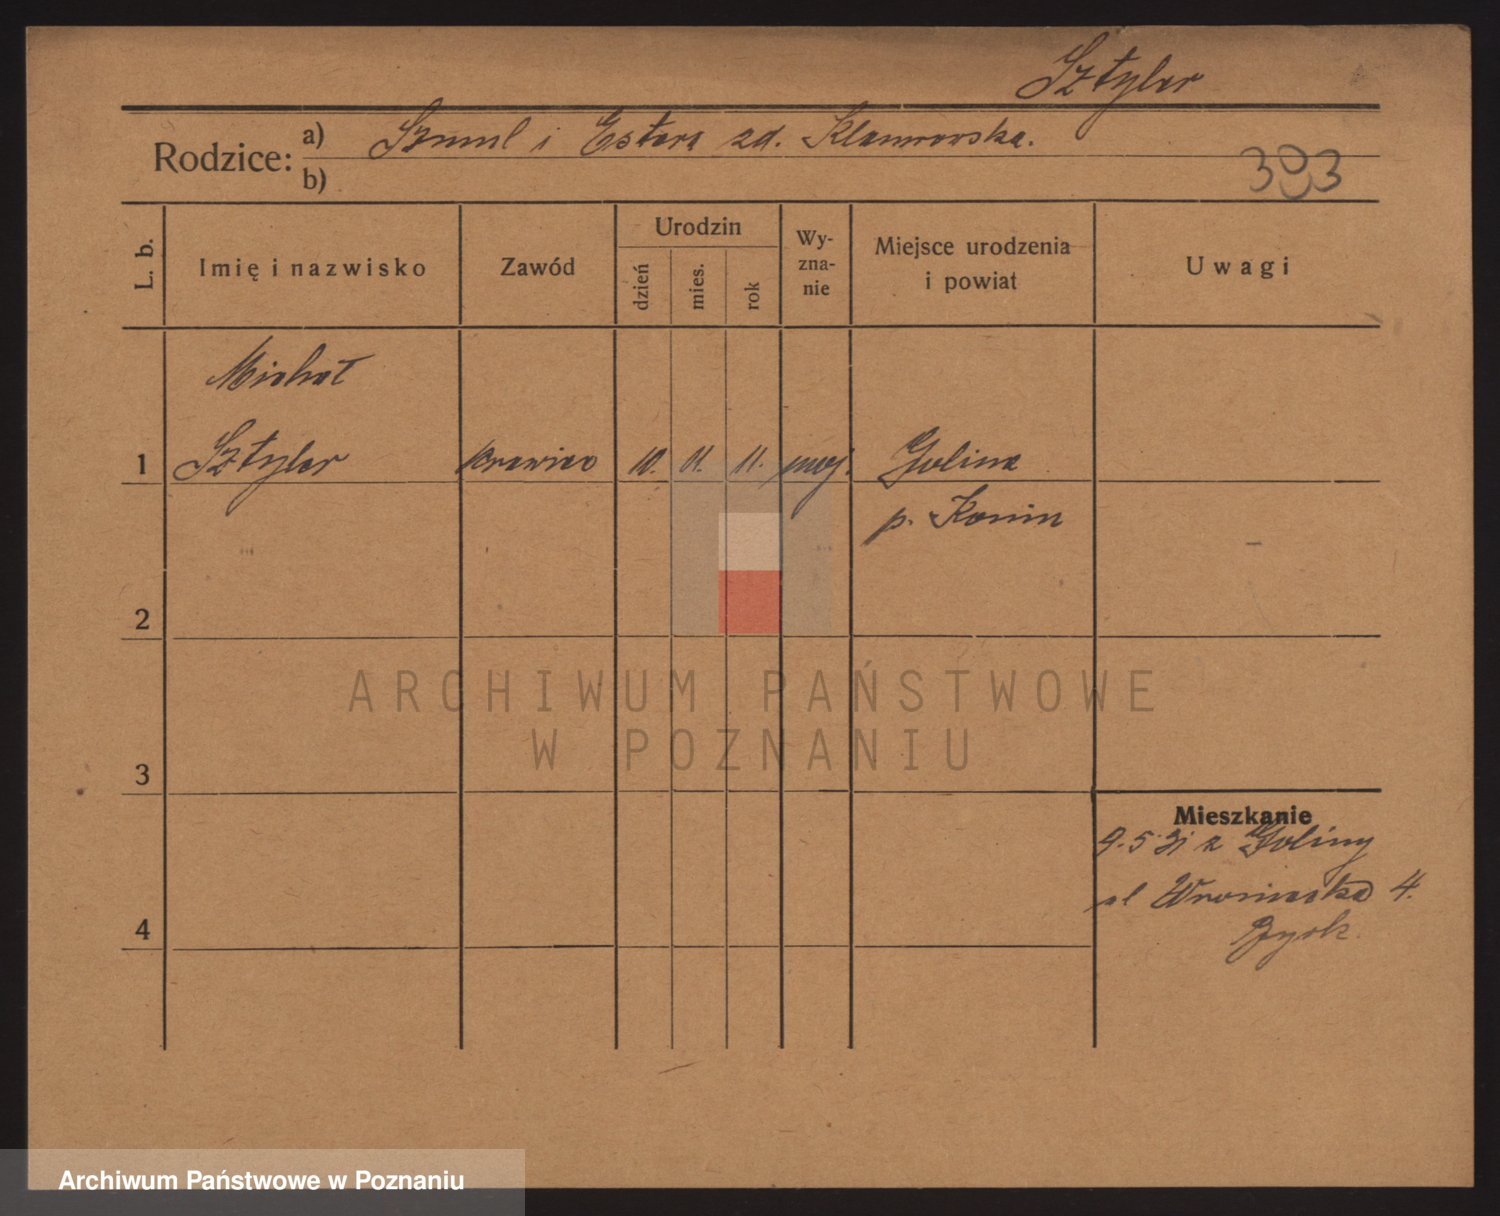 Sztyler
Rodzice: a) Szmul i Estera zd. Klamrowska.
b)
393
L. b.
Imię i nazwisko
Zawód
Urodzin
dzień
mies.
rok
Wy-
zna-
nie
Miejsce urodzenia
i powiat
Uwagi
Michał
1 Sztyler krawiec 10. 11. 11. moj. Golina
p. Konin
2
ARCHIWUM PAŃSTWOWE
W POZNANIU
3
Mieszkanie
9.5.31 z Goliny
ul Wroniecka 4.
4
Archiwum Państwowe w Poznaniu